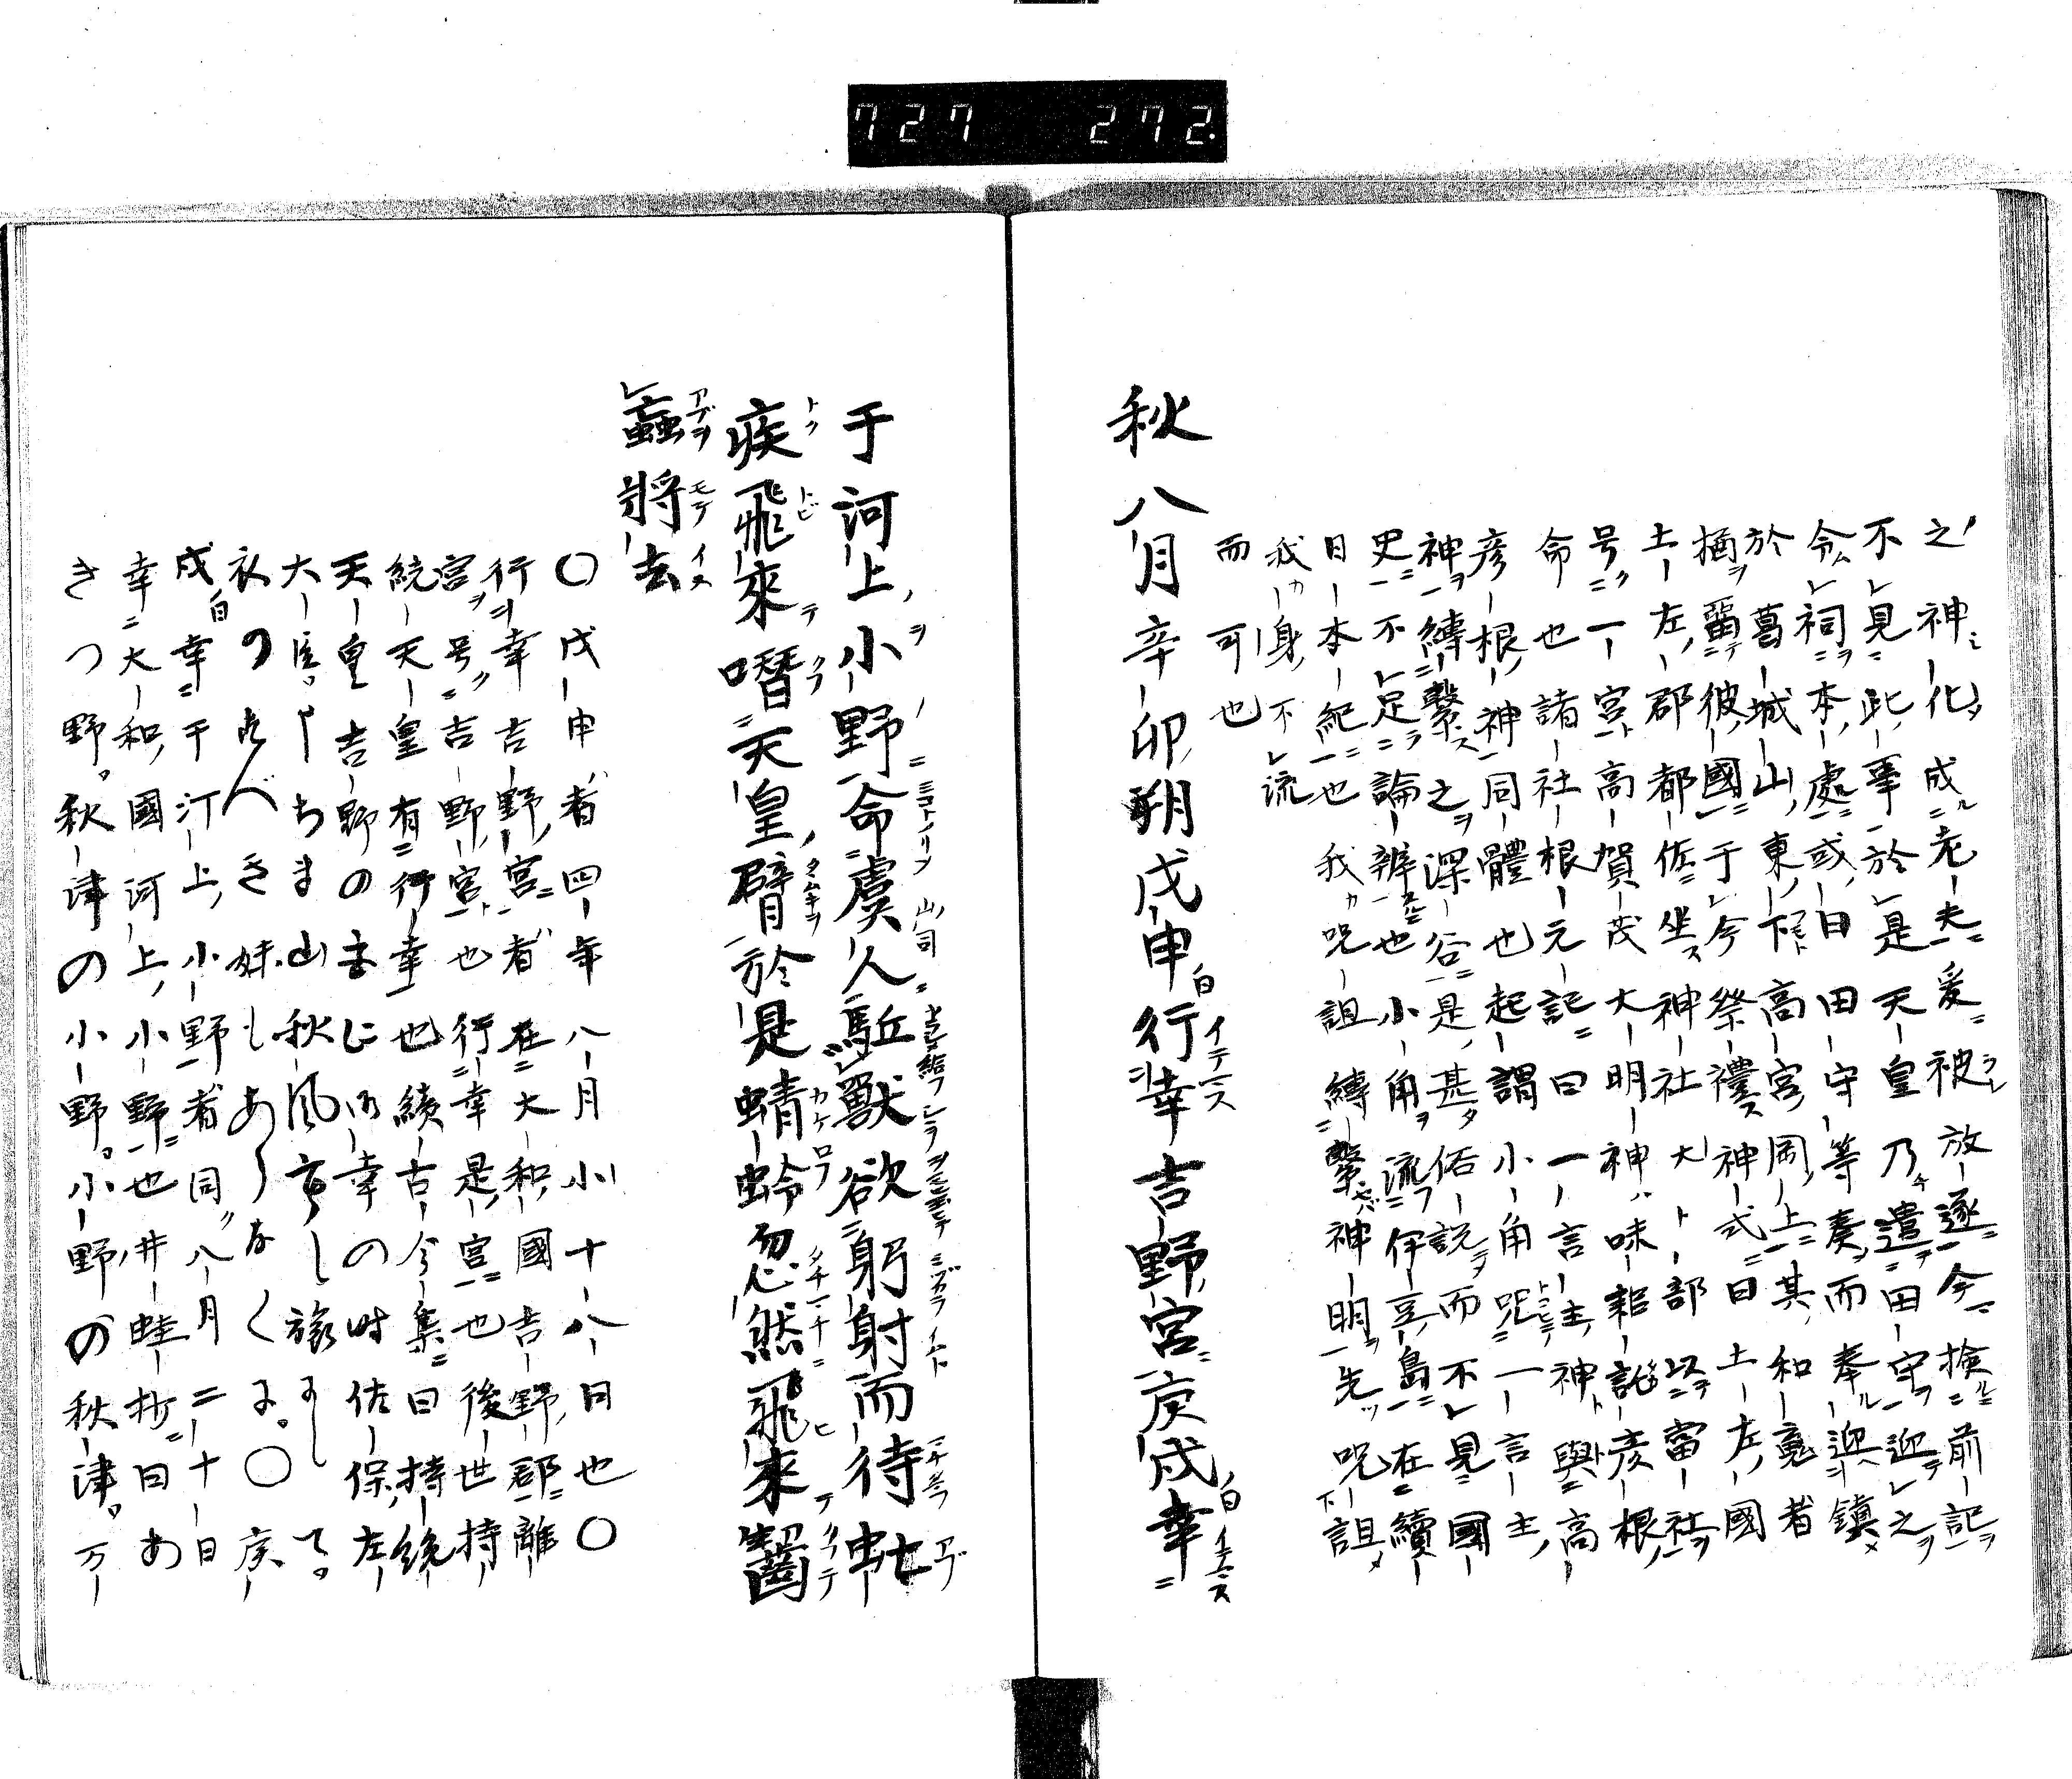 727 272.
之神化成老夫爰被放逐今檢前記
不見此事於是天皇乃遣田守迎之
令祠本處或曰田守等奏而奉迎鎮
於葛城山東下高宮岡上其和魂者
猶留彼國于今祭禮神式曰土左國
土左郡都佐坐神社大部以當社
号一宮高賀茂大明神味耜託彥根
命也諸社根元記曰一言主神與高
彥根神同體也起謂小角咒一言主
神縛繫之深谷是甚俗說而不見國
史不足論辨也小角流伊豆島在續
日本紀也我咒詛縛繫神明先咒詛
我身不流
而可也
秋八月辛卯朔戊申行幸吉野宮庚戌幸
于河上小野命虞人駈獸欲躬射而待虻
疾飛來噆天皇臂於是蜻蛉忽然飛來齧
蝱將去
○戊申者四年八月小十八日也○
行幸吉野宮者在大和國吉野郡離
宮号吉野宮也行幸是宮也後世持
統天皇有行幸也續古今集曰持統
天皇吉野の宮に御幸の時佐保左
大臣ちま山秋風
衣のべき妹もあらなくに。○庚
戌幸于河上小野者同八月二十日
幸大和國河上小野也井蛙抄曰あ
きつ野。秋津の小野。小野の秋津。万